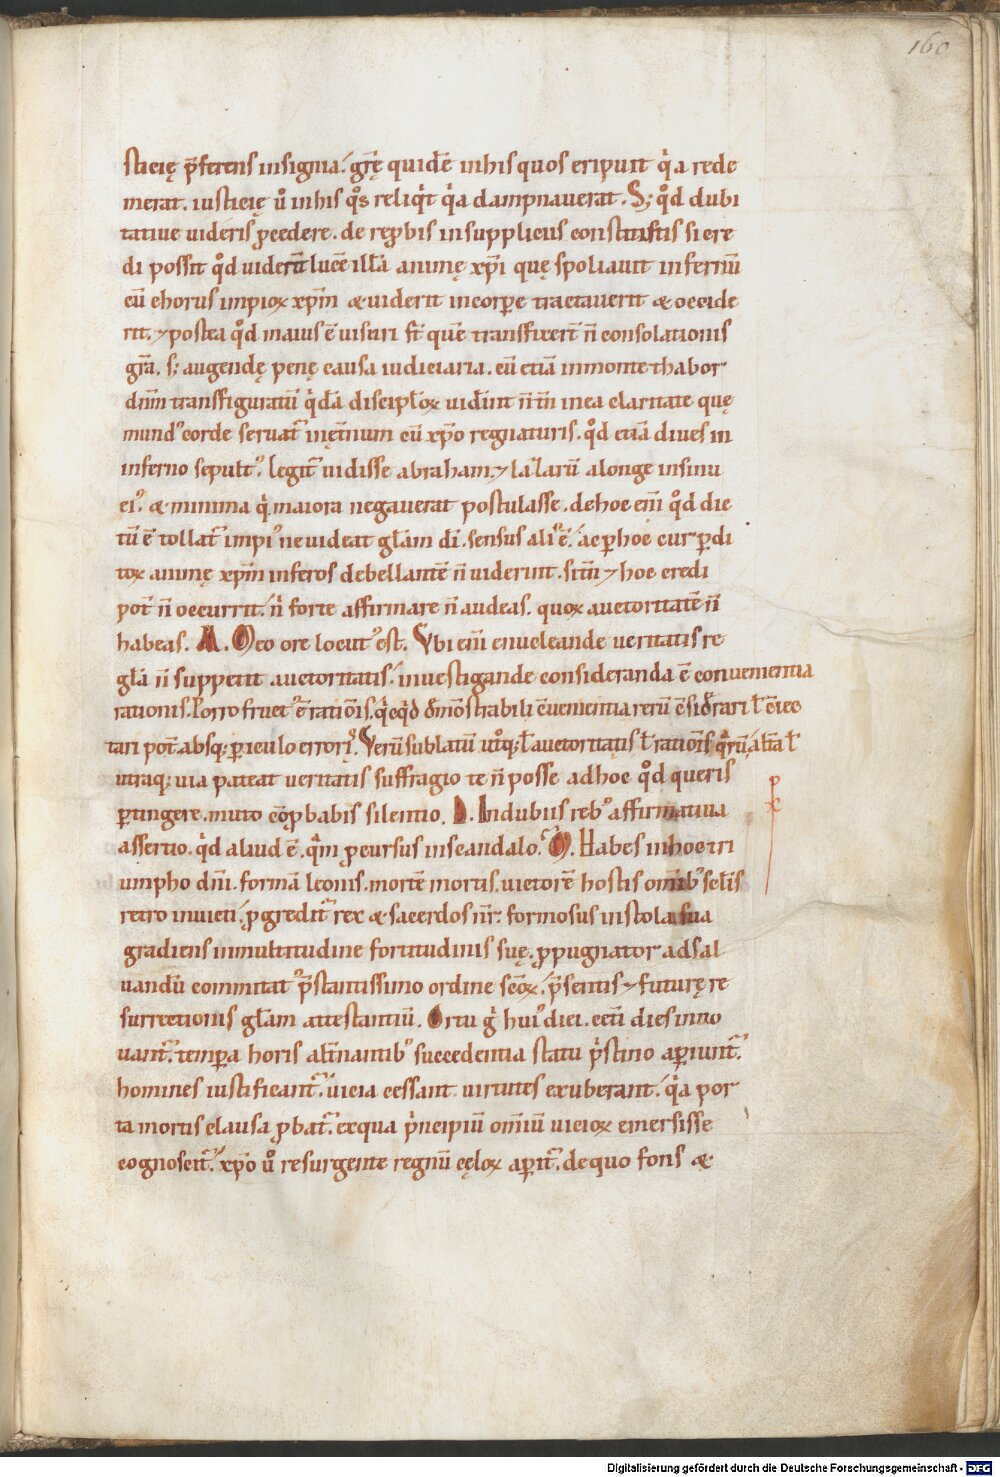 160
sticię p̄ferens insignia. grę̄ quidē in his quos eripuit qͥa rede
merat. iusticię ů in his qͦs reliqͥt qͥa dampnauerat. S; qͦd dubi
tatiue uideris ꝓcedere. de reꝓbis in suppliciis constitutis si cre
di possit qͦd uiderit lucē illā animę xp̄i quę spoliauit infernū
cū chorus impioꝝ xp̄m & uiderit in corꝑe tractauerit & occide
rit. ⁊ postea qͦd maius ē uisuri st̄ quē transfixerēt n̄ consolationis
gr̄a. s; augendę penę causa iudiciaria. cū etiā in monte thabor
dn̄m transfiguratū qͥdā discipl̄oꝝ uider̄int n̄ tn̄ in ea claritate quę
mundꝰ corde seruat᷑ in ęt̄num cū xp̄o regnaturis. qͦd etiā diues in
inferno sepultꝰ. legit᷑ uidisse abraham. ⁊ lazarū a longe in sinu
eiꝰ. & minima qͥ maiora negauerat postulasse. de hoc eni̅ qͦd dic
tū ē tollat᷑ impiꝰ ne uideat gl̄am dī. sensus aliꝰ ē. ac ꝑ hoc cur ꝑdi
toꝝ animę xp̄m inferos debellantē n̄ uiderint. si tn̄ ⁊ hoc credi
pot̄ n̄ occurrit. nͥ forte affirmare n̄ audeas. quoꝝ auctoritatē n̄
habeas. M. Meo ore locutꝰ est. Vbi eni̅ enucleande ueritatis re
gl̄a n̄ suppetit auctoritatis. inuestigande consideranda ē conuenientia
rationis. Porro
tari pot̄ absq; ꝑiculo erroris. Verū sublatū auctoritatis l̄ rationis
utraq; uia pateat ueritatis suffragio te n̄ posse ad hoc qͦd queris
ꝑtingere. muto cōꝓbabis silentio. D. In dubiis rebꝰ affirmatiua
assertio. qͥd aliud ē. qͣm ꝓcursus in scandalo. M. Habes in hoc tri
umpho dn̄i. formā leonis. mortē mortis. uictorē hostis omnibꝰ sc̄lis
retro inuicti. ꝓgredit᷑ rex & sacerdos nr̄. formosus in stola sua
gradiens in multitudine fortitudinis suę. ꝓpugnator ad sal
uandū comitat᷑ p̄stantissimo ordine sc̄oꝝ. p̄sentis ⁊ futurę re
surrectionis gl̄am attestantiū. Ortu gͦ huiꝰ diei. cet̄i dies inno
uant᷑. tempora horis alt̄nantibꝰ succedentia statu pͥstino aꝑiunt᷑.
homines iustificant᷑. uicia cessant. uirtutes exuberant. qͥa por
ta mortis clausa ꝓbat᷑. ex qua pͥncipiū omniū uicioꝝ emersisse
cognoscit᷑. xp̄o ů resurgente regnū cęloꝝ aꝑit᷑. de quo fons &
Digitalisierung gefördert durch die Deutsche Forschungsgemeinschaft - DFG